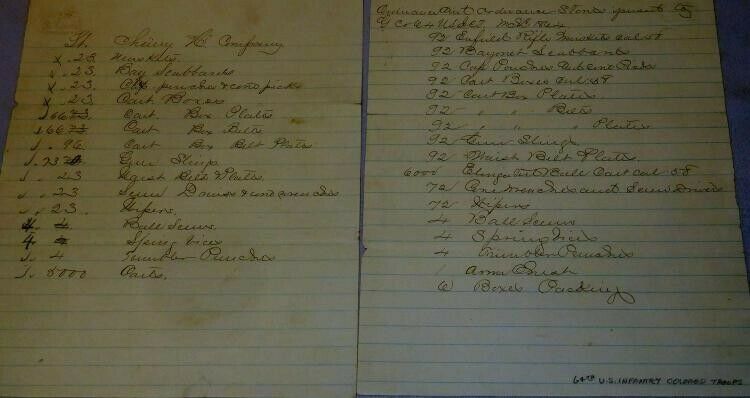 Company
x. 23. Muskets.
x. 23 Bay Scabbards
x. 23. Cap pouches & cone picks
x. 23 Cart Boxes
Cart. Box Plates
Cart Box Belts
. 96 Cart Box Belt Plates
Gun Slings
. 23 Waist Belts & Plates.
. 23 Screw Drivers & cone wrenches
. 23. Wipers.
4. 4 Ball Screws
4. Spring Vices
. 4 Tumbler Punches
. 5000 Carts.
Ordnance and Ordnance Stores
92 Enfield Rifle Muskets cal 58
92 Bayonet Scabbards
92 Cap Pouches and cone Picks
92 Cart Boxes Cal. 58
92 Cart Box Plates.
92 " " Belts
92 " " " Plates
92 Gun Slings
92 Waist Belt Plates.
6000 Elongated Ball Cart Cal. 58
72 Cone wrenches and Screw Drivers
72 Wipers
4 Ball Screws
4 Spring Vices
4 Tumbler Punches
1 Arm Chest
6 Boxes Packing
64TH U.S. INFANTRY COLORED TROOPS